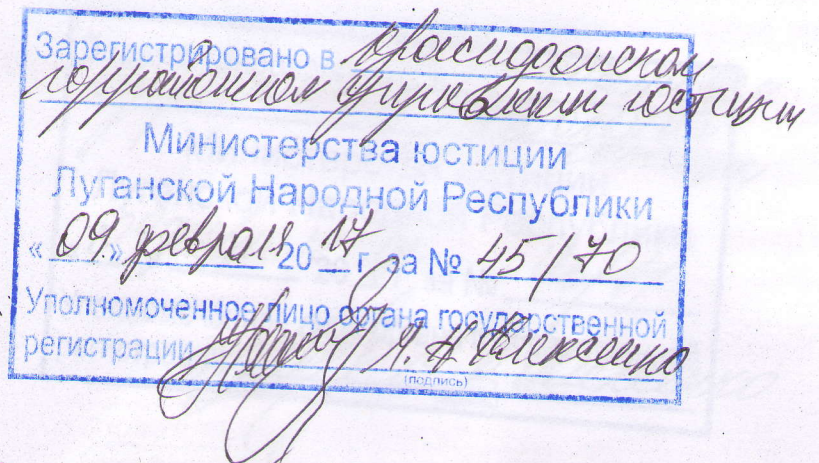 Зарегистрировано в Краснодонском
горрайонном управлении юстиции
Министерства юстиции
Луганской Народной Республики
« 09 » февраля 20 17 г. за № 45/70
Уполномоченное лицо органа государственной
регистрации
(подпись)